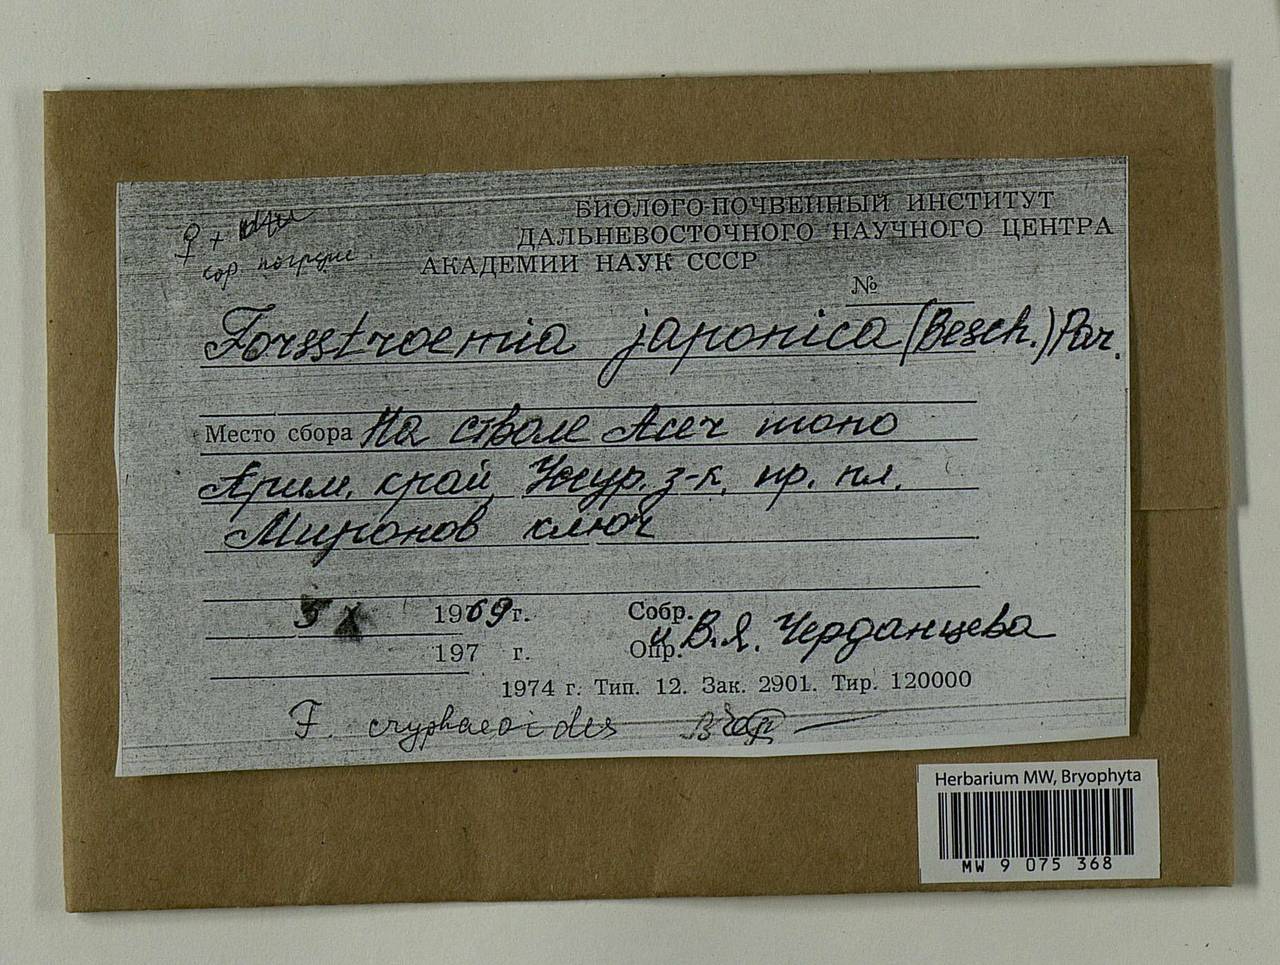 ♀ +
кор. погруж.
БИОЛОГО-ПОЧВЕННЫЙ ИНСТИТУТ
ДАЛЬНЕВОСТОЧНОГО НАУЧНОГО ЦЕНТРА
АКАДЕМИИ НАУК СССР
№
Forsstroemia japonica (Besch.) Par.
Место сбора На стволе Acer mono
Прим. край, Уссур. з-к, пр. пл.
Миронов ключ
5 X 1969 г. Собр.
197 г. Опр. и В.Я. Черданцева
1974 г. Тип. 12. Зак. 2901. Тир. 120000
F. cryphaeoides
Herbarium MW, Bryophyta
MW 9 075 368